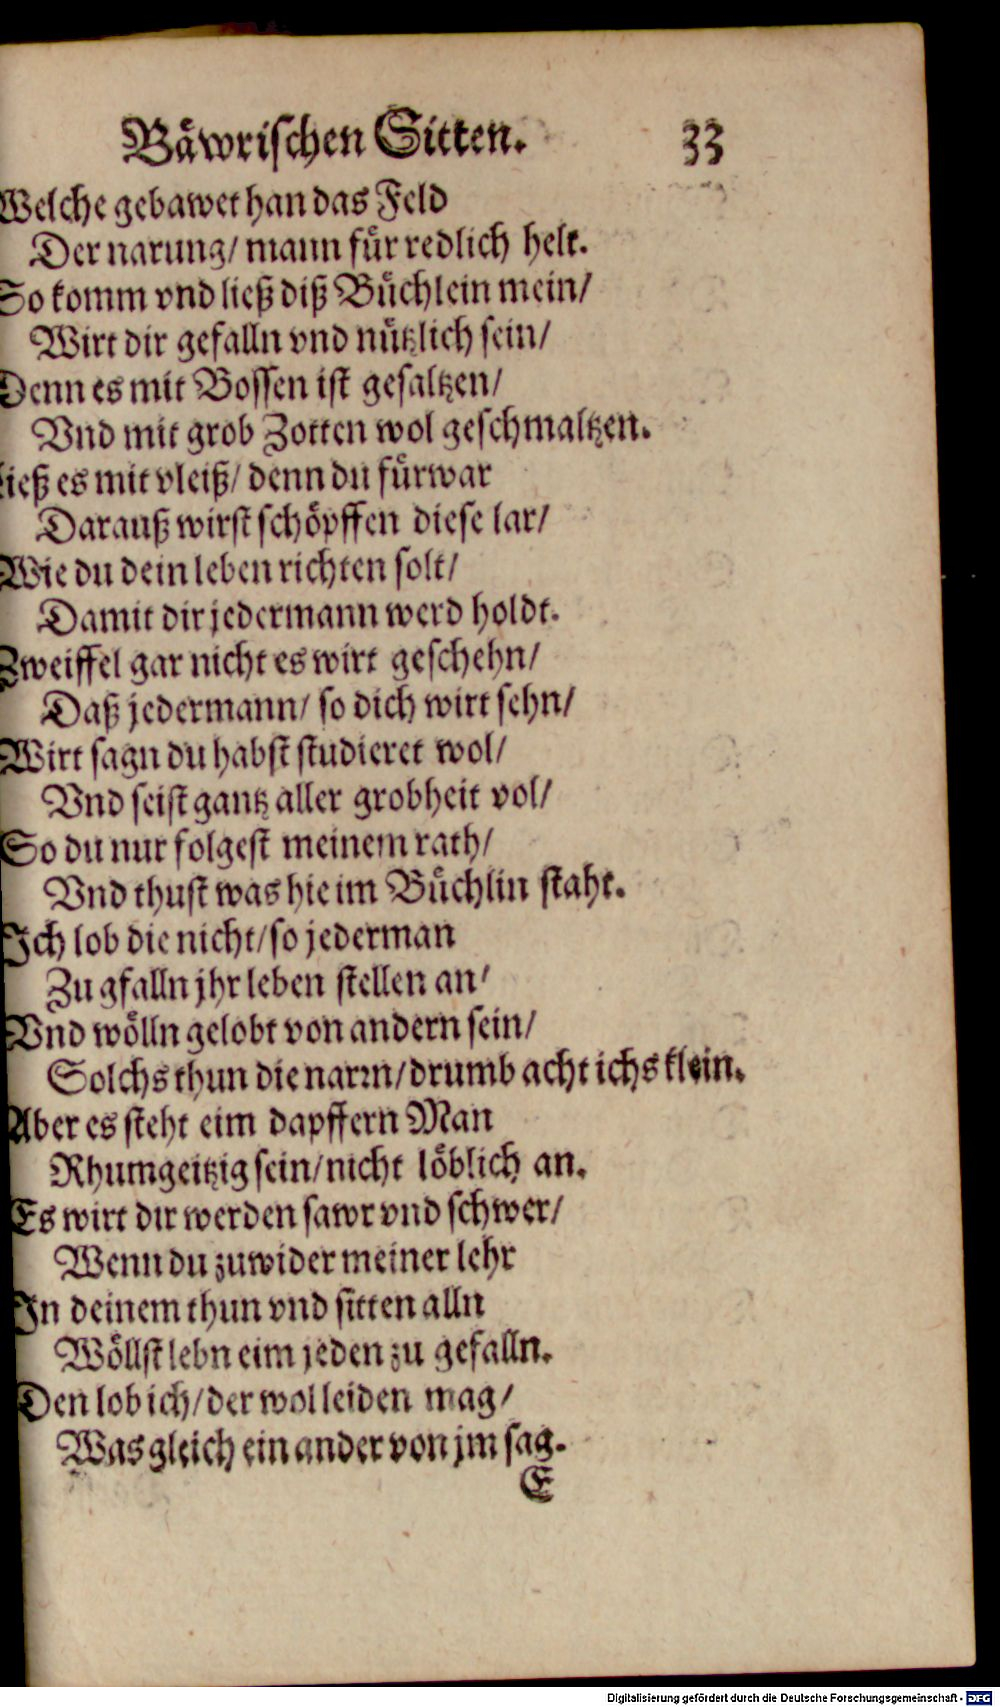 Bäwrischen Sitten. 33
Welche gebawet han das Feld
Der narung/ mann für redlich helt.
So komm vnd ließ diß Büchlein mein/
Wirt dir gefalln vnd nützlich sein/
Denn es mit Bossen ist gesaltzen/
Vnd mit grob Zotten wol geschmaltzen.
Ließ es mit vleiß/ denn du fürwar
Darauß wirst schöpffen diese lar/
Wie du dein leben richten solt/
Damit dir jedermann werd holdt.
Zweiffel gar nicht es wirt geschehn/
Daß jedermann/ so dich wirt sehn/
Wirt sagn du habst studieret wol/
Vnd seist gantz aller grobheit vol/
So du nur folgest meinem rath/
Vnd thust was hie im Büchlin staht.
Ich lob die nicht/ so jederman
Zu gfalln jhr leben stellen an/
Vnd wölln gelobt von andern sein/
Solchs thun die narrn/ drumb acht ichs klein.
Aber es steht eim dapffern Man
Rhumgeitzig sein/ nicht löblich an.
Es wirt dir werden sawr vnd schwer/
Wenn du zuwider meiner lehr
In deinem thun vnd sitten alln
Wöllst lebn eim jeden zu gefalln.
Den lob ich/ der wol leiden mag/
Was gleich ein ander von jm sag.
E
Digitalisierung gefördert durch die Deutsche Forschungsgemeinschaft - DFG